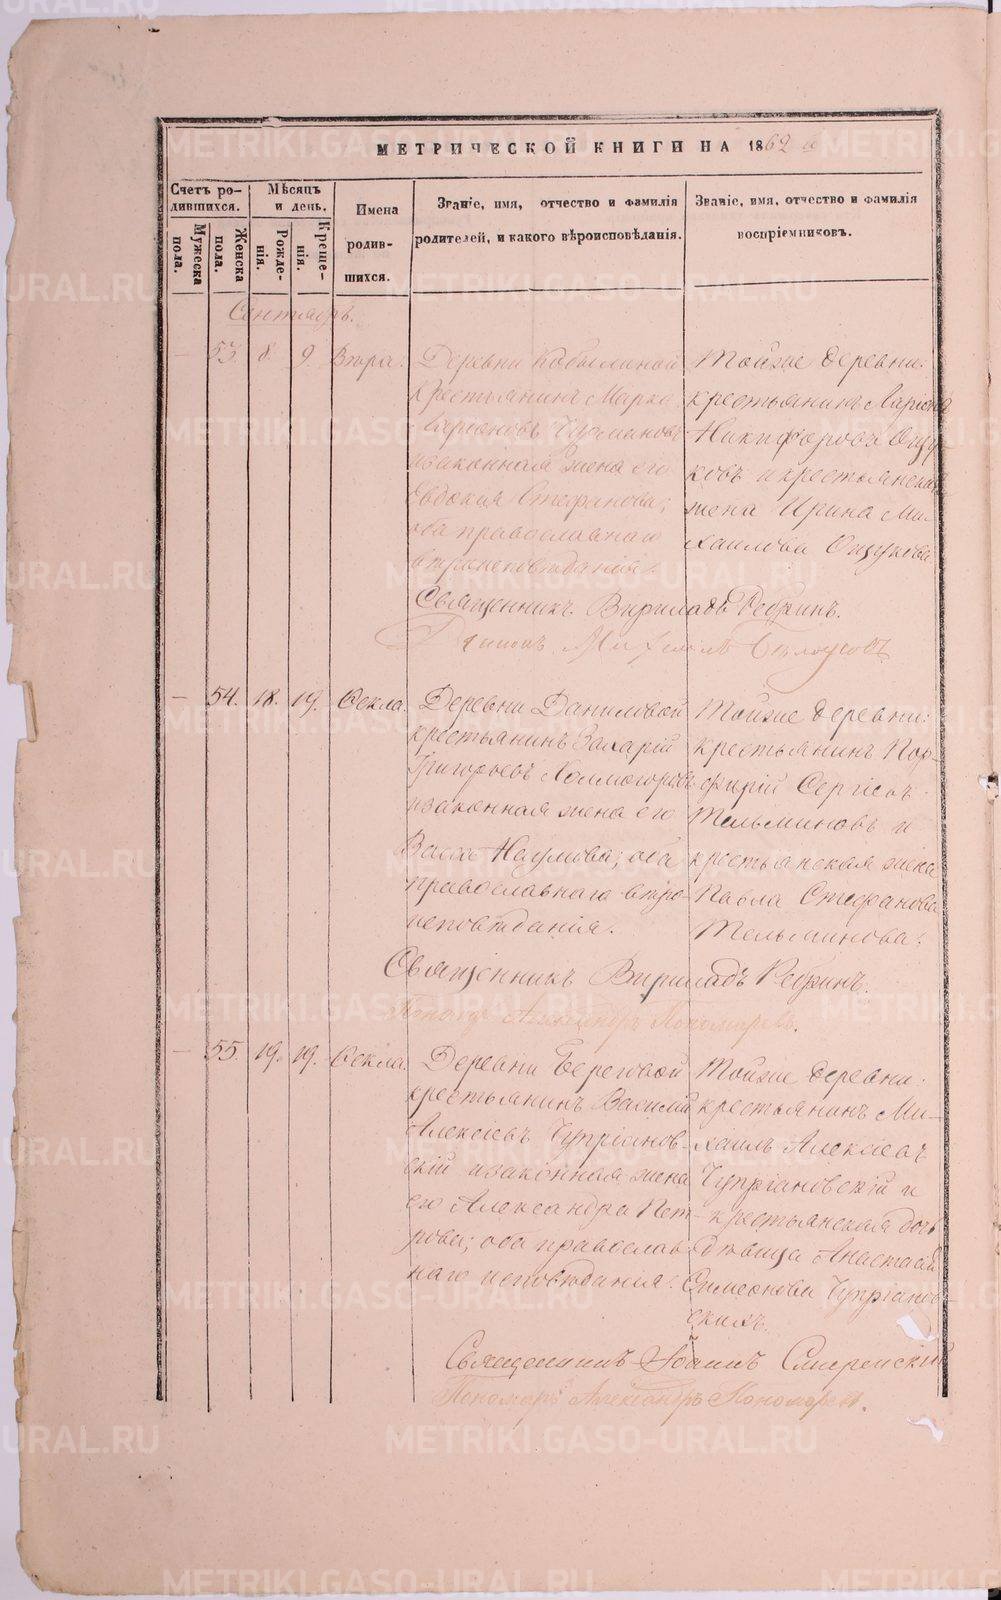 МЕТРИЧЕСКОЙ КНИГИ НА 1862 й
Счетъ ро-
дившихся.
Мужеска пола.
Женска пола.
Мѣсяцъ и день.
Рожде-
нія.
Креще-
нія.
Имена
родив-
шихся.
Званіе, имя, отчество и фамилія
родителей, и какого вѣроисповѣданія.
Званіе, имя, отчество и фамилія
воспріемниковъ.
Сентябрь.
— 53. 8. 9. Вѣра.
Деревни Кобылиной
крестьянинъ Марко
Ларіоновъ
и законная жена его
Евдокія Стефанова;
оба православнаго
вѣроисповѣданія.
Тойже деревни:
крестьянинъ Ларіонъ
Никифоровъ Ощу
ковъ и крестьянская
жена Ирина Ми-
хаилова Ощукова
Священникъ Вириладъ Ребринъ.
Михаилъ
— 54. 18. 19. Ѳекла.
Деревни Даниловой
крестьянинъ Захарій
Григорьевъ Холмогоровъ
и законная жена его
Васса Наумова; оба
православнаго вѣро-
исповѣданія.
Тойже деревни:
крестьянинъ Пор-
фирій Сергіевъ
Тельминовъ и
крестьянская жена
Павла Стефанова
Тельминова.
Священникъ Вириладъ Ребринъ.
Пономарь Александръ Пономаревъ.
— 55. 19. 19. Ѳекла.
Деревни Береговой
крестьянинъ Василій
Алексіевъ Чупріанов-
скій и законная жена
его Александра Пет-
рова; оба православ-
наго исповѣданія.
Тойже деревни:
крестьянинъ Ми-
хаилъ Алексіевъ
Чупріановскій и
крестьянская дочь
дѣвица Анастасія
Симеонова Чупріанов
скихъ.
Священникъ Іоаннъ Смиренскій
Пономарь Александръ Пономаревъ.
METRIKI.GASO-URAL.RU